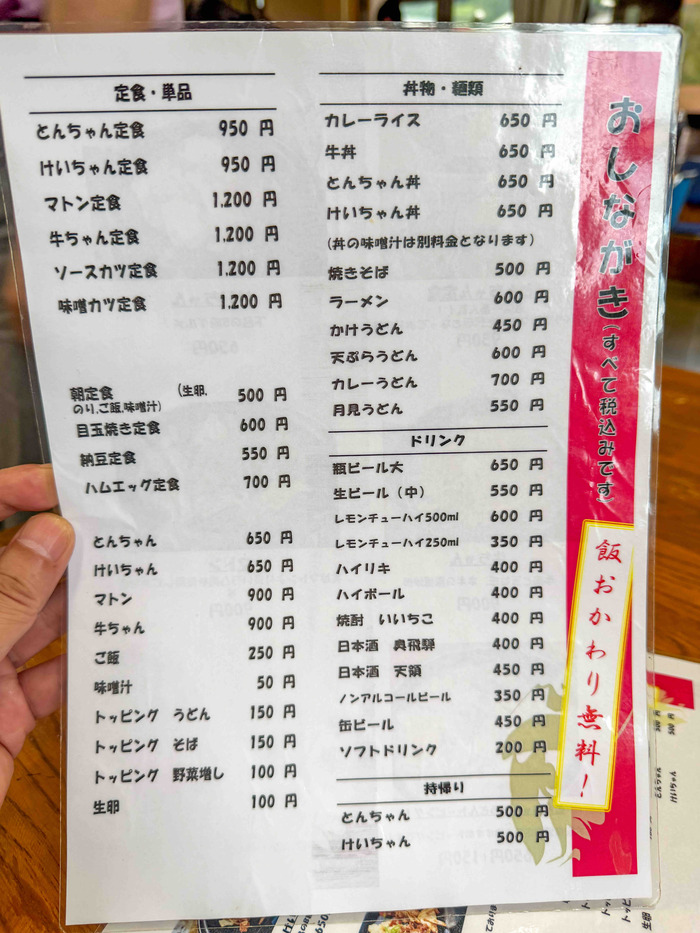 おしながき(すべて税込みです)
飯おかわり無料！
定食・単品
とんちゃん定食 950 円
けいちゃん定食 950 円
マトン定食 1,200 円
牛ちゃん定食 1,200 円
ソースカツ定食 1,200 円
味噌カツ定食 1,200 円
朝定食 (生卵, 500 円
のり,ご飯,味噌汁)
目玉焼き定食 600 円
納豆定食 550 円
ハムエッグ定食 700 円
とんちゃん 650 円
けいちゃん 650 円
マトン 900 円
牛ちゃん 900 円
ご飯 250 円
味噌汁 50 円
トッピング うどん 150 円
トッピング そば 150 円
トッピング 野菜増し 100 円
生卵 100 円
丼物・麺類
カレーライス 650 円
牛丼 650 円
とんちゃん丼 650 円
けいちゃん丼 650 円
(丼の味噌汁は別料金となります)
焼きそば 500 円
ラーメン 600 円
かけうどん 450 円
天ぷらうどん 600 円
カレーうどん 700 円
月見うどん 550 円
ドリンク
瓶ビール大 650 円
生ビール（中） 550 円
レモンチューハイ500ml 600 円
レモンチューハイ250ml 350 円
ハイリキ 400 円
ハイボール 400 円
焼酎 いいちこ 400 円
日本酒 奥飛騨 400 円
日本酒 天領 450 円
ノンアルコールビール 350 円
缶ビール 450 円
ソフトドリンク 200 円
持帰り
とんちゃん 500 円
けいちゃん 500 円